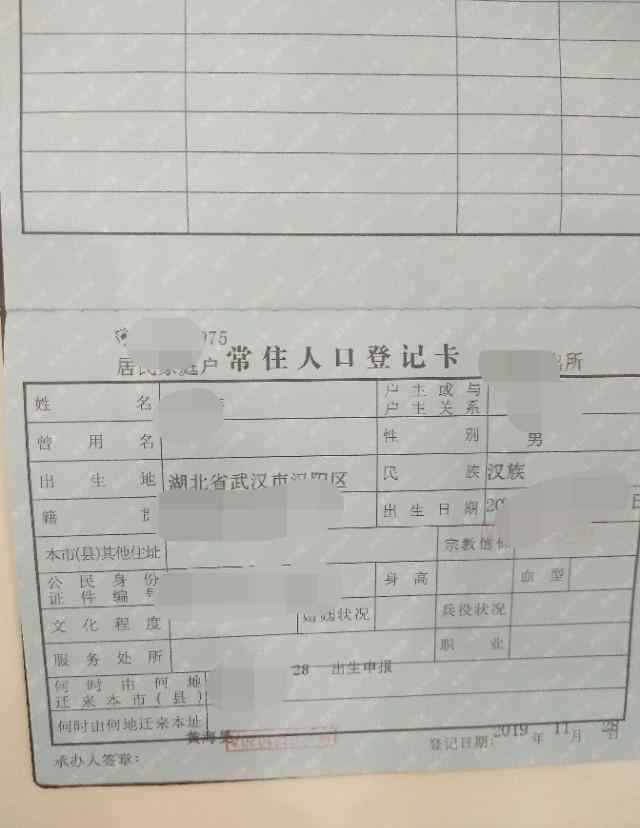 075
居民家庭户 常住人口登记卡 出所
姓名 户主或与户主关系
曾用名 性别 男
出生地 湖北省武汉市汉阳区 民族 汉族
籍 出生日期 20 日
本市(县)其他住址 宗教信仰
公民身份证件编号 身高 血型
文化程度 婚姻状况 兵役状况
服务处所 职业
何时由何地迁来本市(县) 28 出生申报
何时由何地迁来本址
承办人签章： 登记日期：2019年11月28日